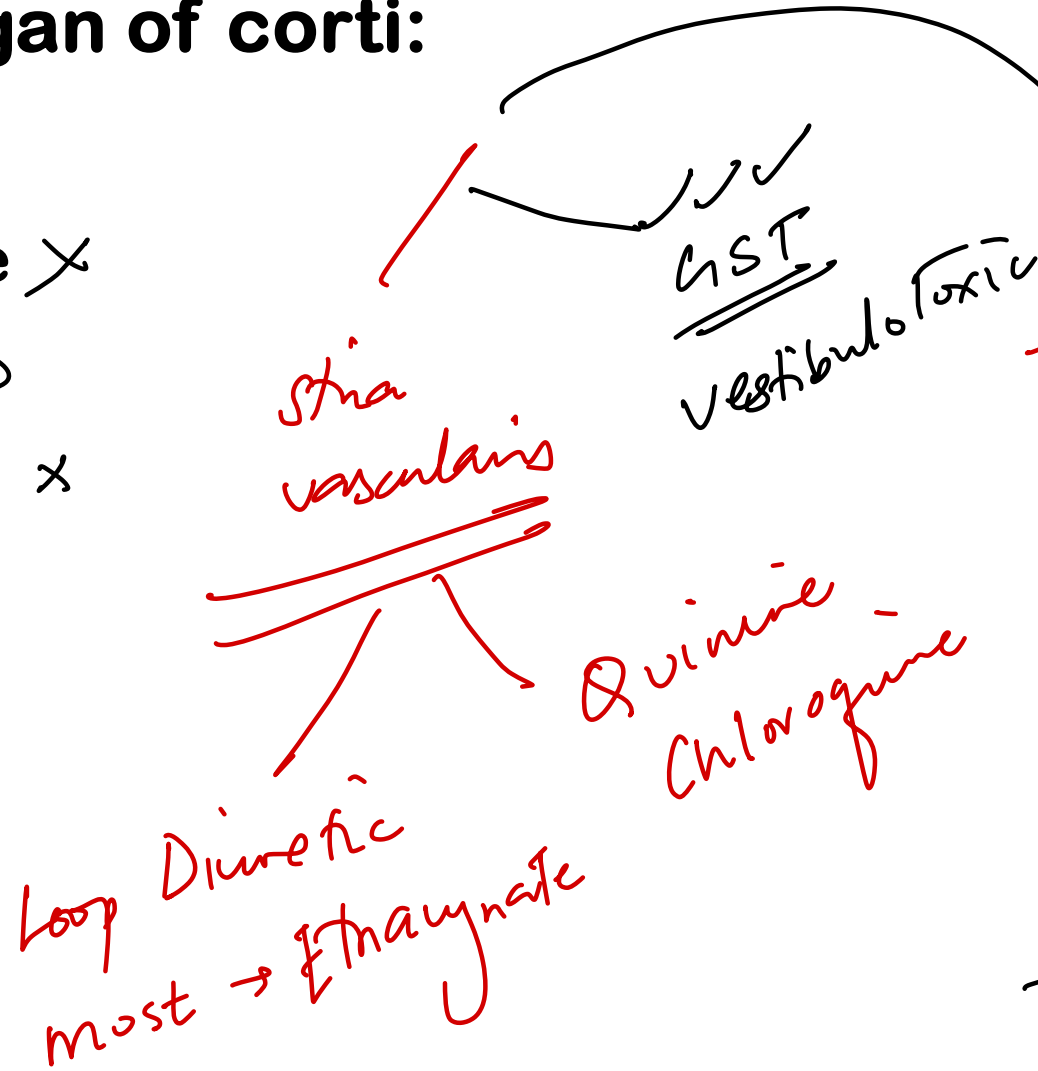 gan of corti:
e x
GST
vestibulo Toxic
x
stria
vascularis
Quinine
Chloroquine
Loop Diuretic
most → Ethacrynate